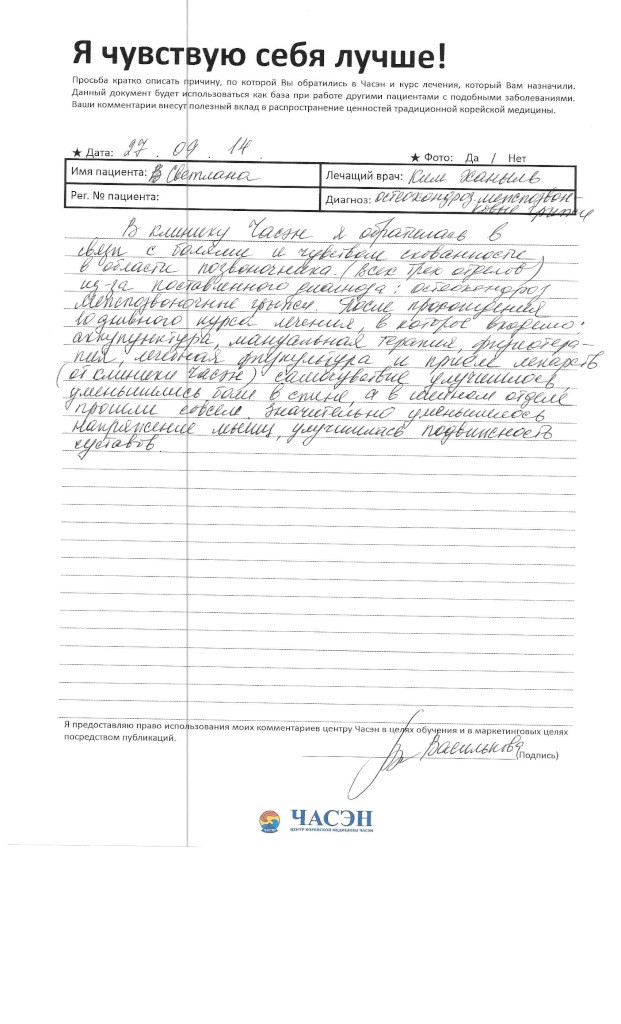 Я чувствую себя лучше!
Просьба кратко описать причину, по которой Вы обратились в Часэн и курс лечения, который Вам назначили.
Данный документ будет использоваться как база при работе другими пациентами с подобными заболеваниями.
Ваши комментарии внесут полезный вклад в распространение ценностей традиционной корейской медицины.
★ Дата: 27 . 09 . 14 . ★ Фото: Да / Нет
Имя пациента: В Светлана Лечащий врач: Ким Ханыль
Рег. № пациента: Диагноз: остеохондроз, межпозвон-
ковые грыжи
В клинику Часэн я обратилась в
связи с болями и чувством скованности
в области позвоночника. (всех трех отделов)
из-за поставленного диагноза: остеохондроз,
межпозвоночные грыжи. После прохождения
10 дневного курса лечения, в которое входило:
аккупунктура, мануальная терапия, физиотера-
пия, лечебная физкультура и прием лекарств
(от клиники Часэн) самочувствие улучшилось,
уменьшились боли в спине, а в шейном отделе
прошли совсем. Значительно уменьшилось
напряжение мышц, улучшилась подвижность
суставов.
Я предоставляю право использования моих комментариев центру Часэн в целях обучения и в маркетинговых целях
посредством публикаций.
Василькова (Подпись)
ЧАСЭН
ЦЕНТР КОРЕЙСКОЙ МЕДИЦИНЫ ЧАСЭН